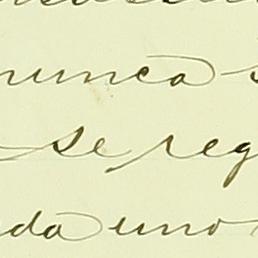 nunca
se reg
da uno